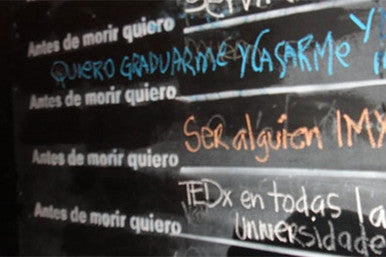 Antes de morir quiero
QUIERO GRADUARME Y CASARME Y
Antes de morir quiero
Ser alguien
Antes de morir quiero
TEDx en todas la
Antes de morir quiero
Universidade